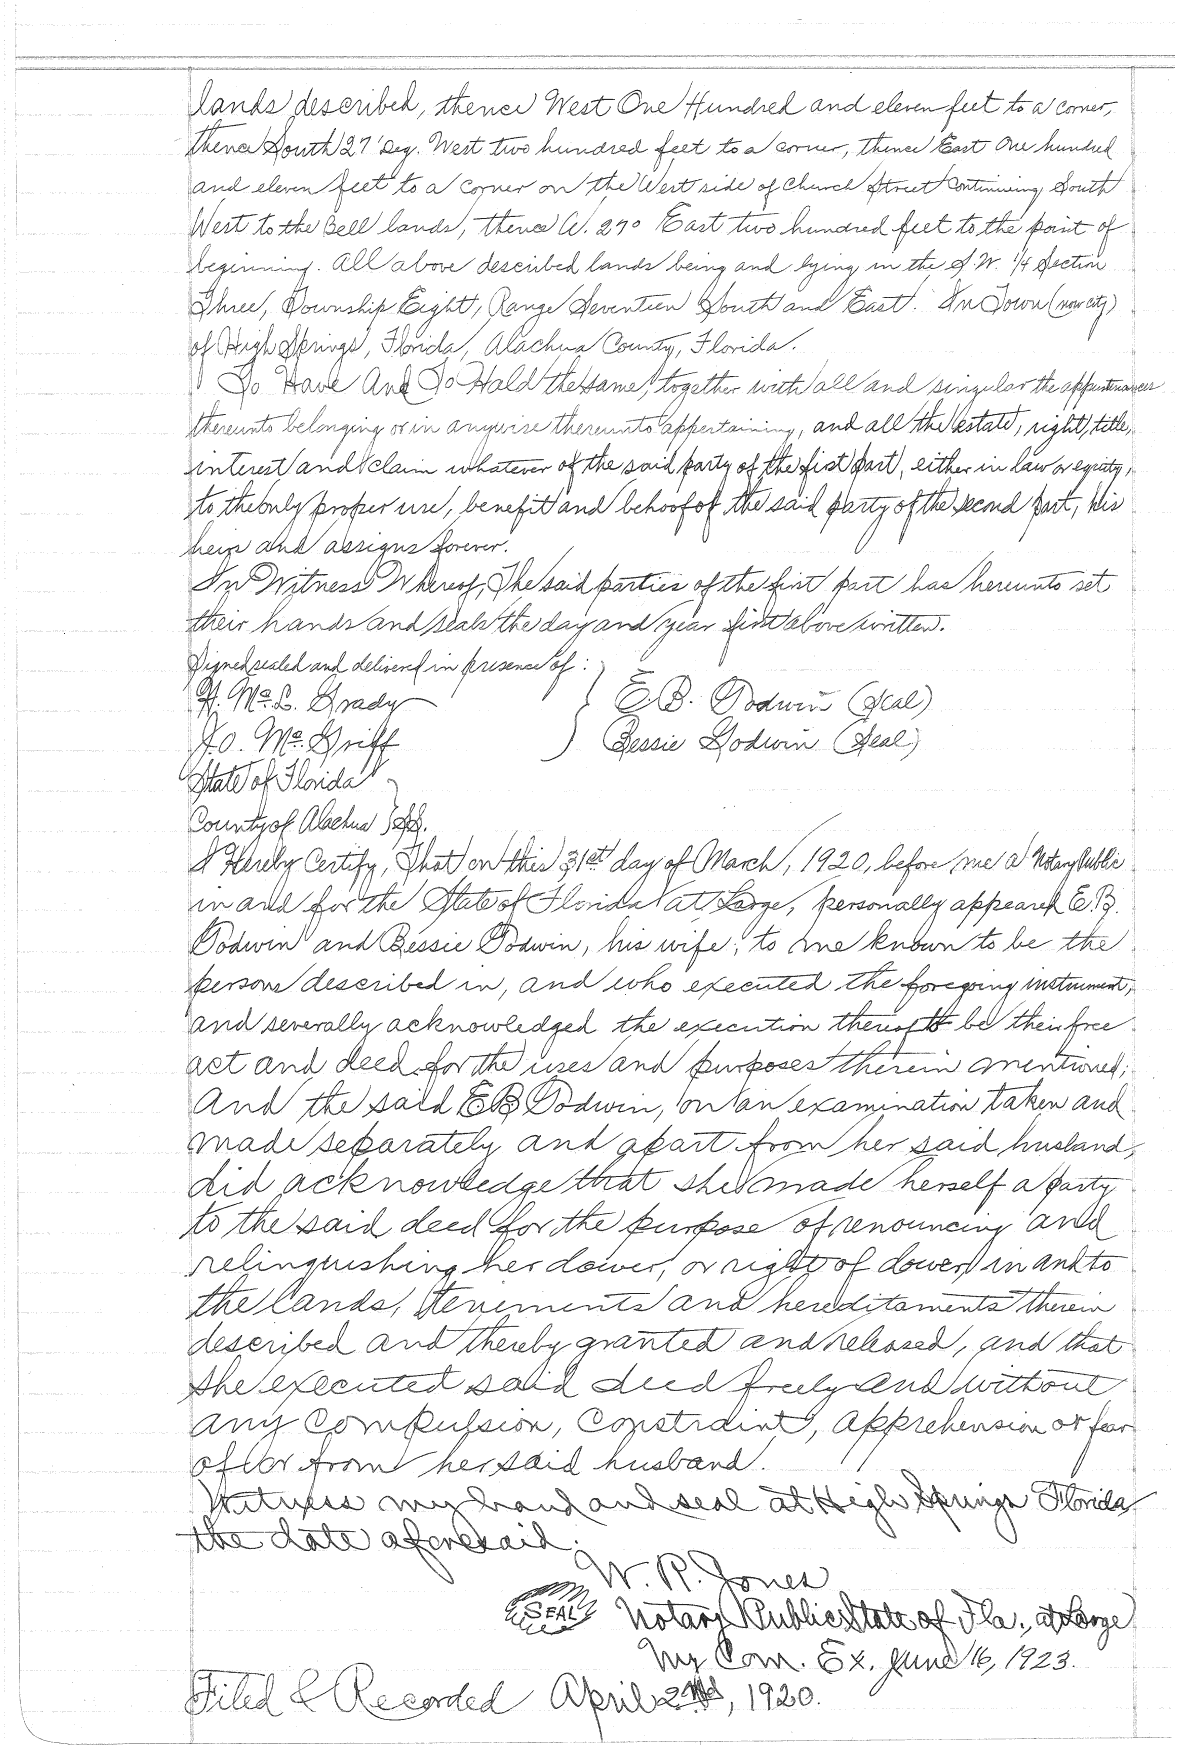 lands described, thence West One Hundred and eleven feet to a corner,
thence South 27 Deg. West two hundred feet to a corner, thence East One hundred
and eleven feet to a corner on the West side of Church Street Continuing South
West to the Bell lands, thence N. 27° East two hundred feet to the point of
beginning. All above described lands being and lying in the S.W. 1/4 Section
Three, Township Eight, Range Seventeen South and East. In Town (now city)
of High Springs, Florida, Alachua County, Florida.
To Have And To Hold the same, together with all and singular the appurtenances
thereunto belonging or in anywise thereunto appertaining, and all the estate, right, title,
interest and claim whatever of the said party of the first part, either in law or equity,
to the only proper use, benefit and behoof of the said party of the second part, his
heirs and assigns forever.
In Witness Whereof, The said parties of the first part has hereunto set
their hands and seals the day and year first above written.
Signed sealed and delivered in presence of :
H. Mc. L. Grady } E. B. Godwin (Seal)
Jo. Mc. Griff ) Bessie Godwin (Seal)
State of Florida
County of Alachua } SS.
I Hereby Certify, That on this 31st day of March, 1920, before me a Notary Public
in and for the State of Florida at Large, personally appeared E. B.
Godwin and Bessie Godwin, his wife, to me known to be the
persons described in, and who executed the foregoing instrument,
and severally acknowledged the execution thereof to be their free
act and deed for the uses and purposes therein mentioned;
And the said E B Godwin, on an examination taken and
made separately and apart from her said husband,
did acknowledge that she made herself a party
to the said deed for the purpose of renouncing and
relinquishing her dower, or right of dower, in and to
the lands, tenements and hereditaments therein
described and thereby granted and released, and that
she executed said deed freely and without
any compulsion, constraint, apprehension or fear
of or from her said husband.
Witness my hand and seal at High Springs Florida
the date aforesaid.
W. R. Jones
SEAL Notary Public State of Fla., at Large
My Com. Ex. June 16, 1923.
Filed & Recorded April 2nd, 1920.